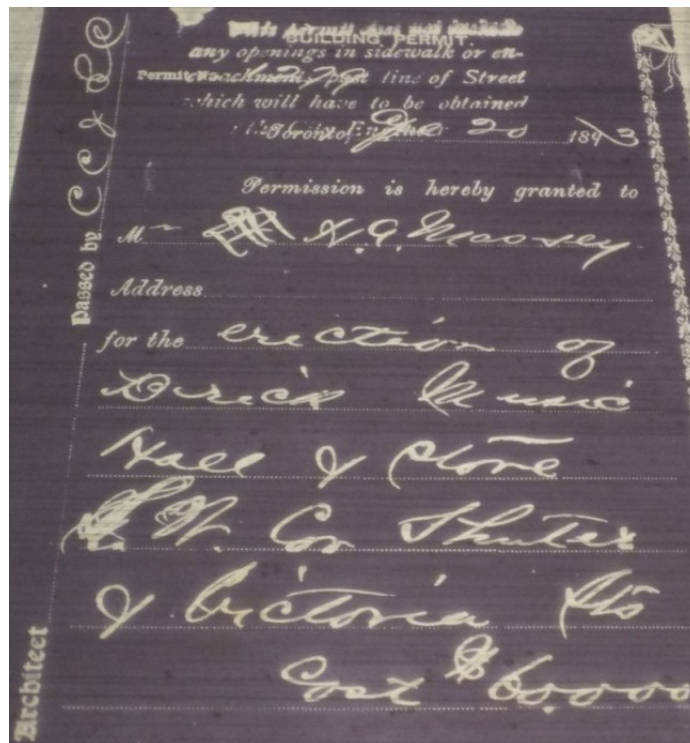 This permit does not include
BUILDING PERMIT.
any openings in sidewalk or en-
Permit No. croachments past line of Street
which will have to be obtained
Toronto, June 20 1893
Permission is hereby granted to
Mr H. A. Massey
Address
for the erection of
Brick Music
Hall & Store
S. W. Cor Shuter
& Victoria Sts
Cost $60.000
Passed by
Architect